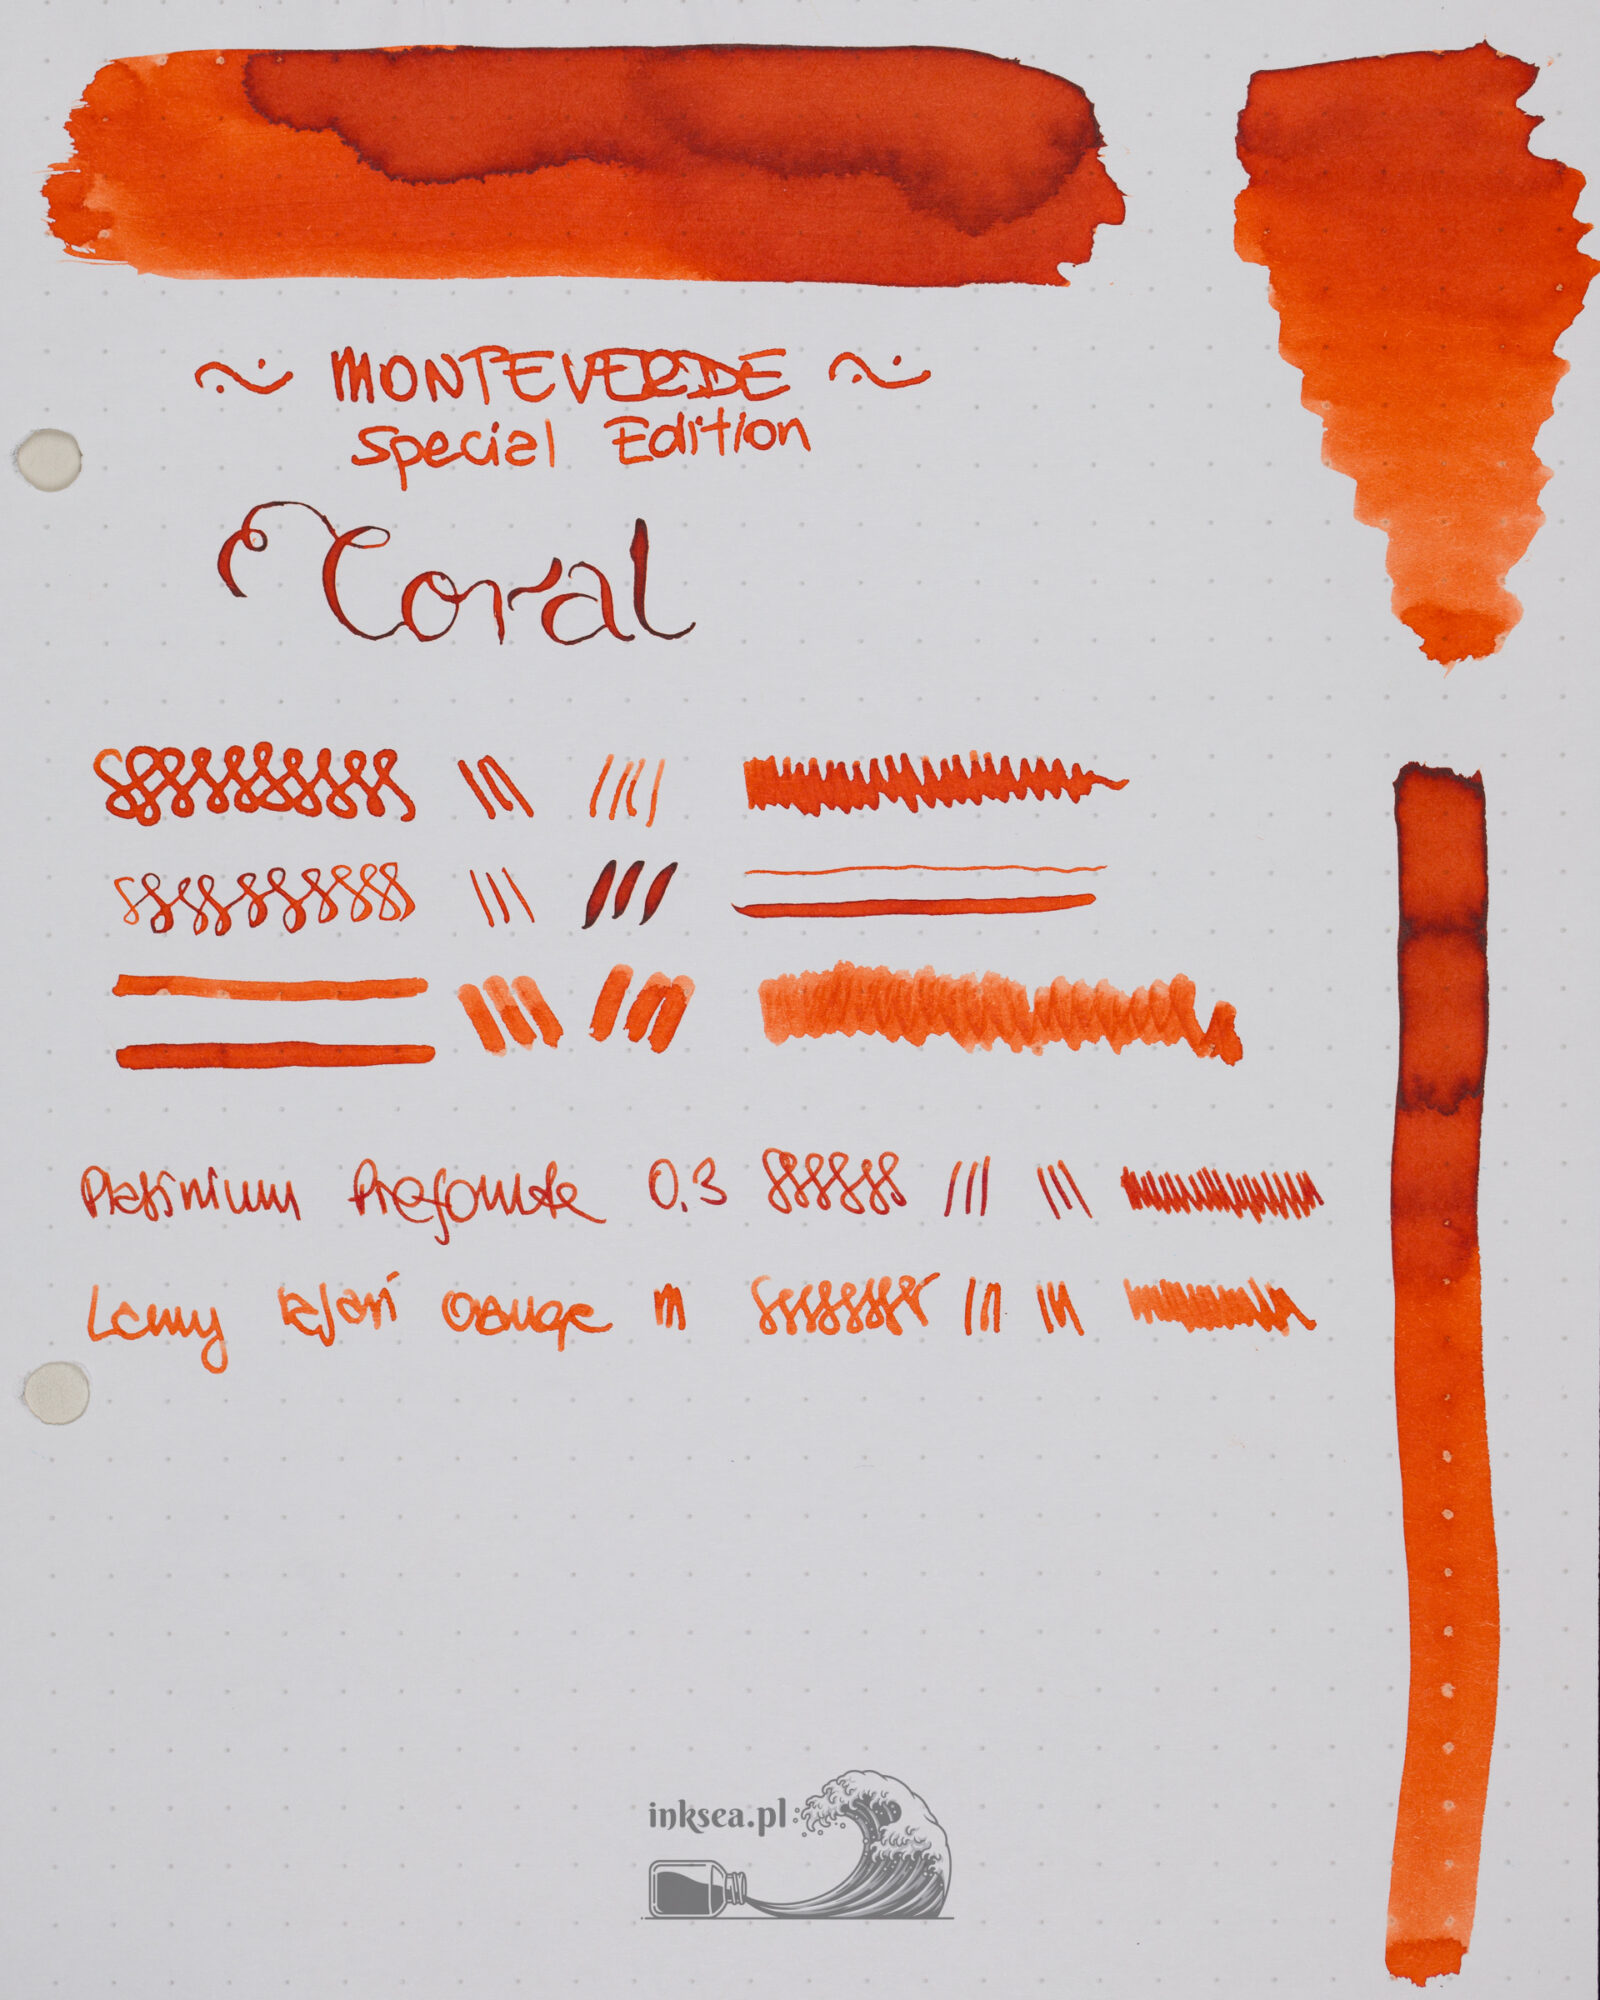 ~ MONTEVERDE ~
Special Edition
Coral
Platinium Prefounte 0.3
Lamy safari Orange m
inksea.pl